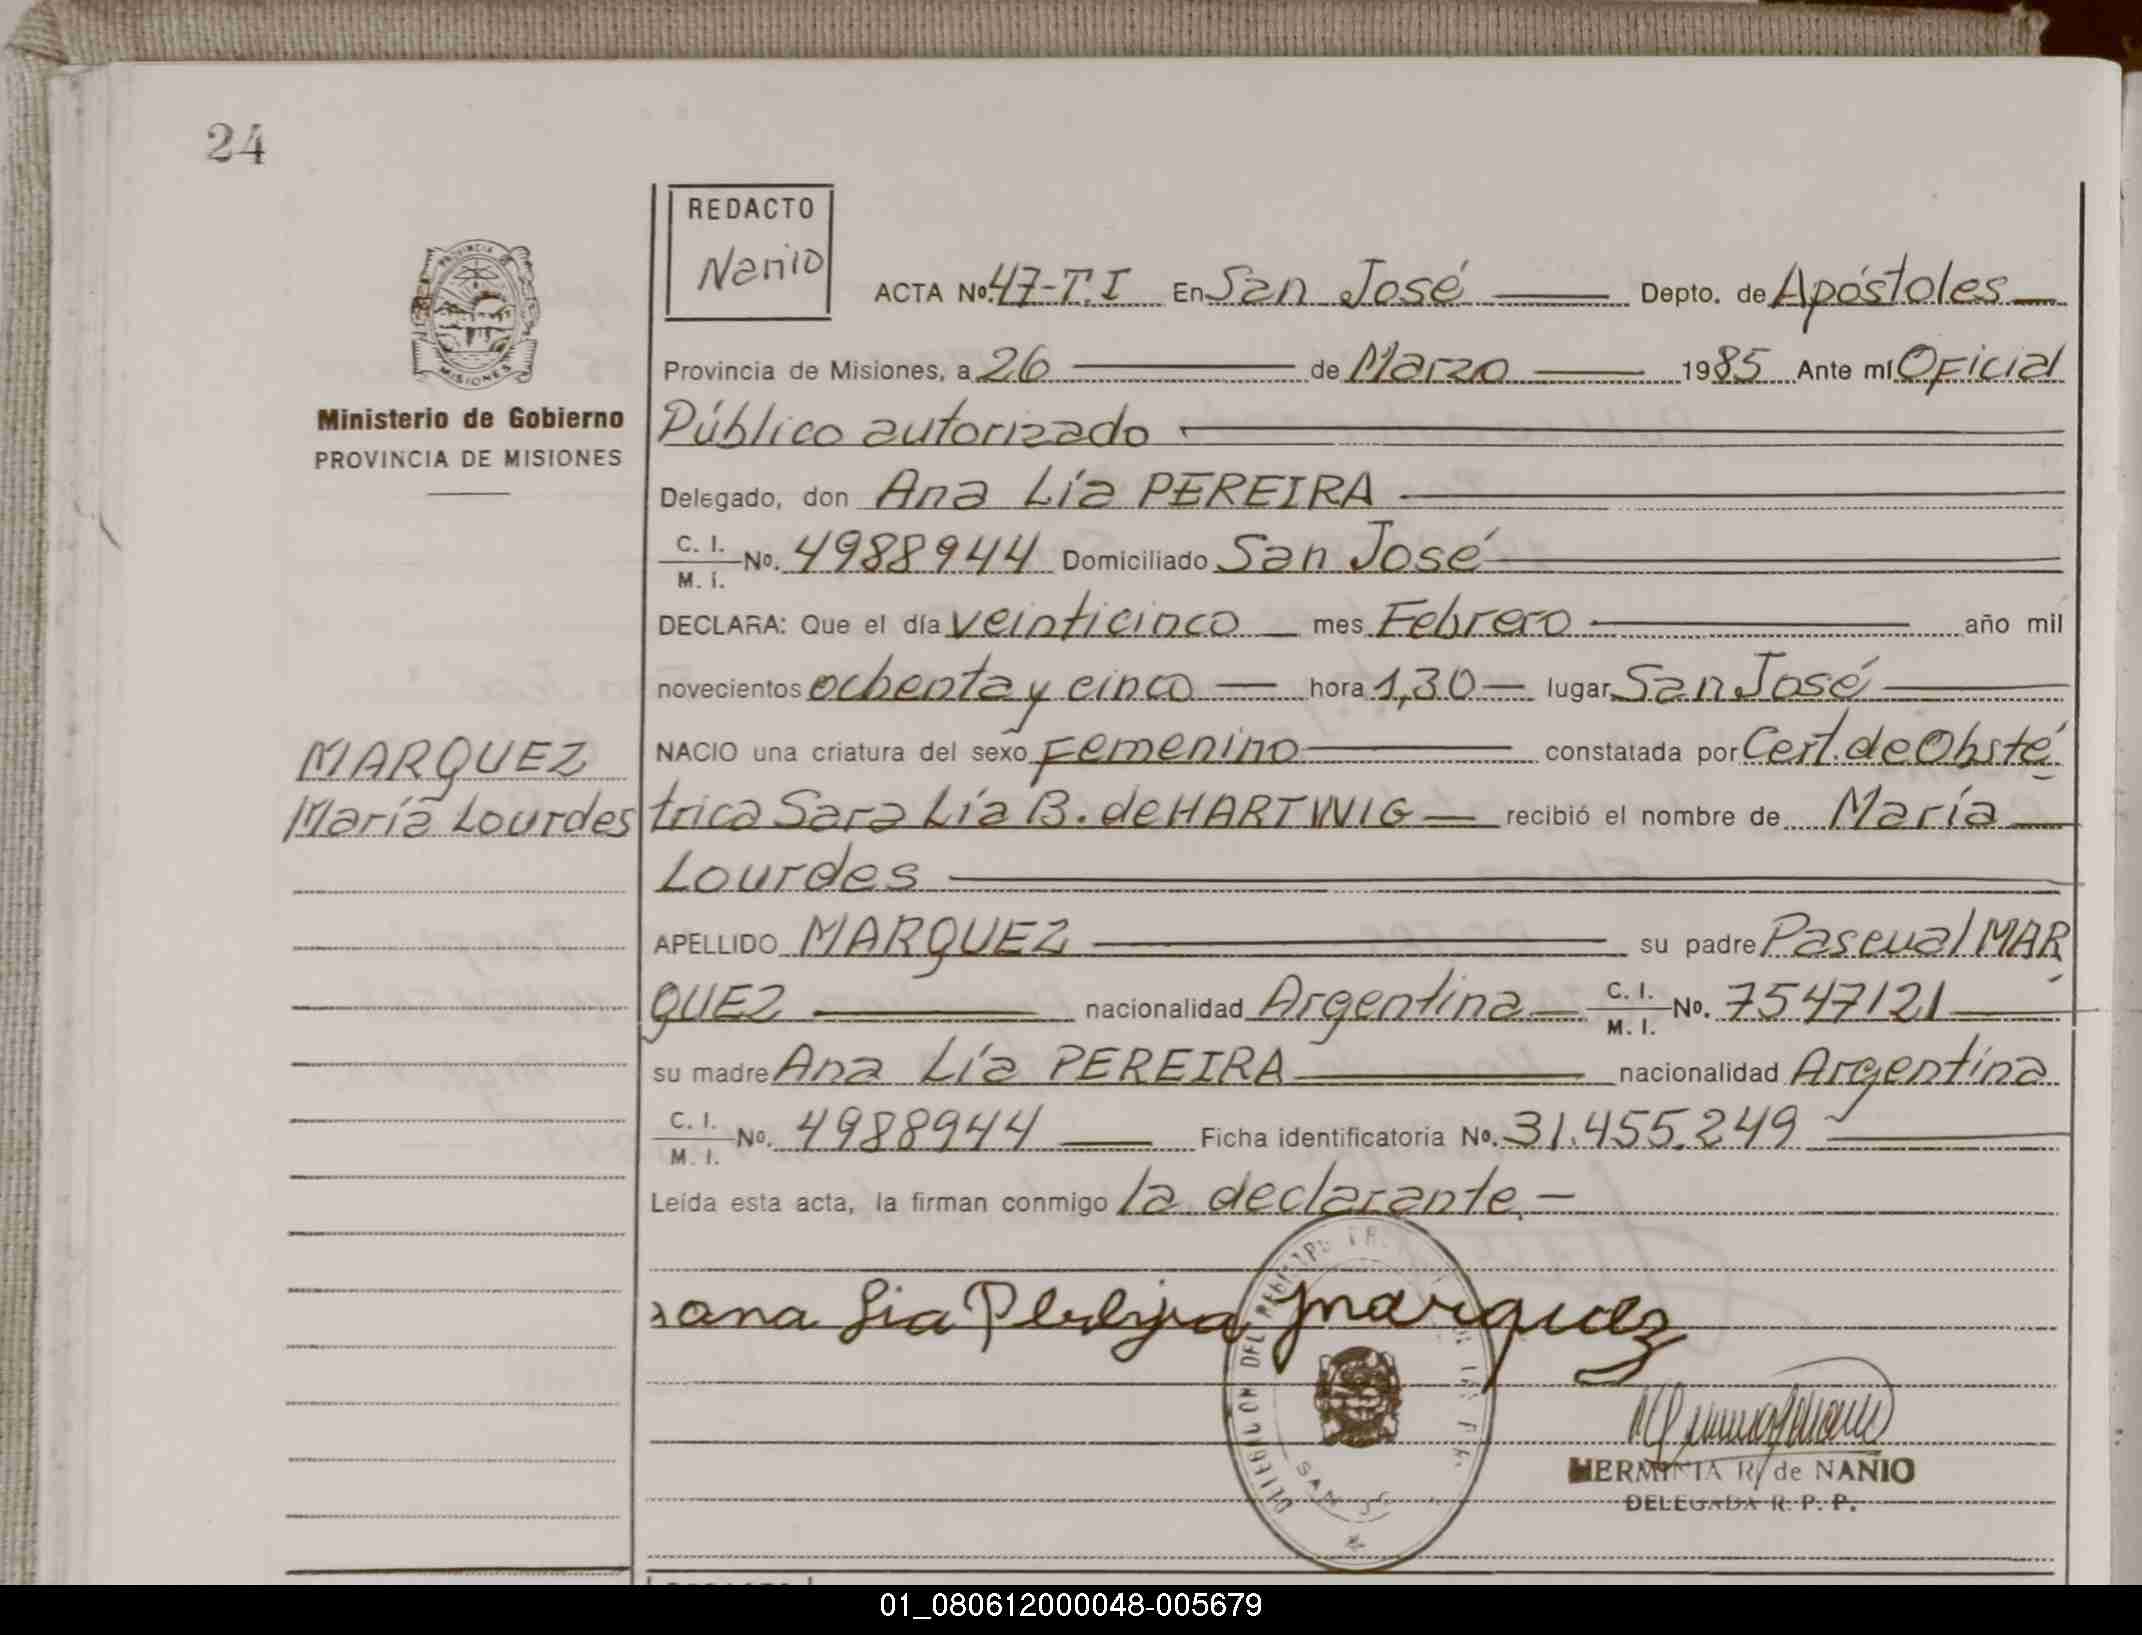 24
REDACTO
Nanio
PROVINCIA DE
MISIONES
Ministerio de Gobierno
PROVINCIA DE MISIONES
ACTA Nº. 47-T.I En San José Depto. de Apóstoles
Provincia de Misiones, a 26 de Marzo 1985 Ante mí Oficial
Público autorizado
Delegado, don Ana Lía PEREIRA
C. I.
M. I. Nº. 4988944 Domiciliado San José
DECLARA: Que el día veinticinco mes Febrero año mil
novecientos ochenta y cinco hora 1,30 lugar San José
NACIO una criatura del sexo femenino constatada por Cert. de Obsté
trica Sara Lía B. de HARTWIG recibió el nombre de María
Lourdes
MARQUEZ
María Lourdes
APELLIDO MARQUEZ su padre Pascual MAR
QUEZ nacionalidad Argentina C. I.
M. I. Nº. 7547121
su madre Ana Lía PEREIRA nacionalidad Argentina
C. I.
M. I. Nº. 4988944 Ficha identificatoria Nº. 31.455.249
Leída esta acta, la firman conmigo la declarante.-
ana Lia Pereyra marquez
DELEGACION DEL
SAN
HERMINIA R. de NANIO
DELEGADA R. P. P.
01_080612000048-005679